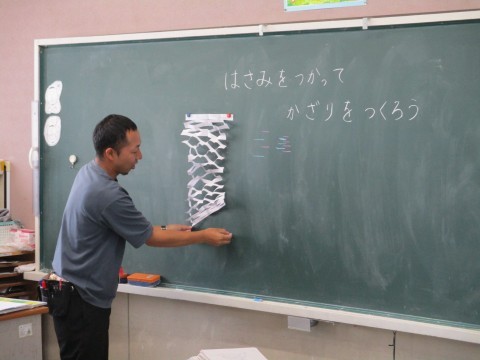 はさみをつかって
かざりをつくろう